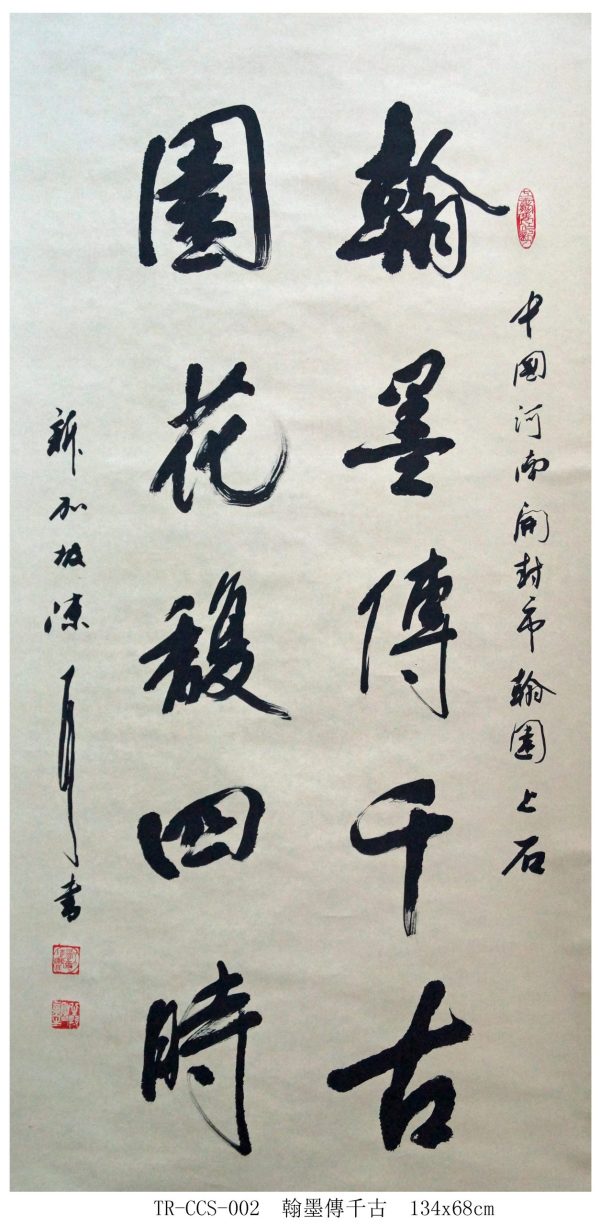 中國河南開封市翰園上石
翰墨傳千古
園花馥四時
新加坡
書
TR-CCS-002 翰墨傳千古 134x68cm